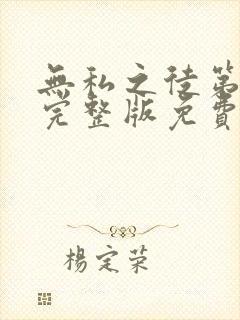 無私之徒第
完整版免費
楊定荣